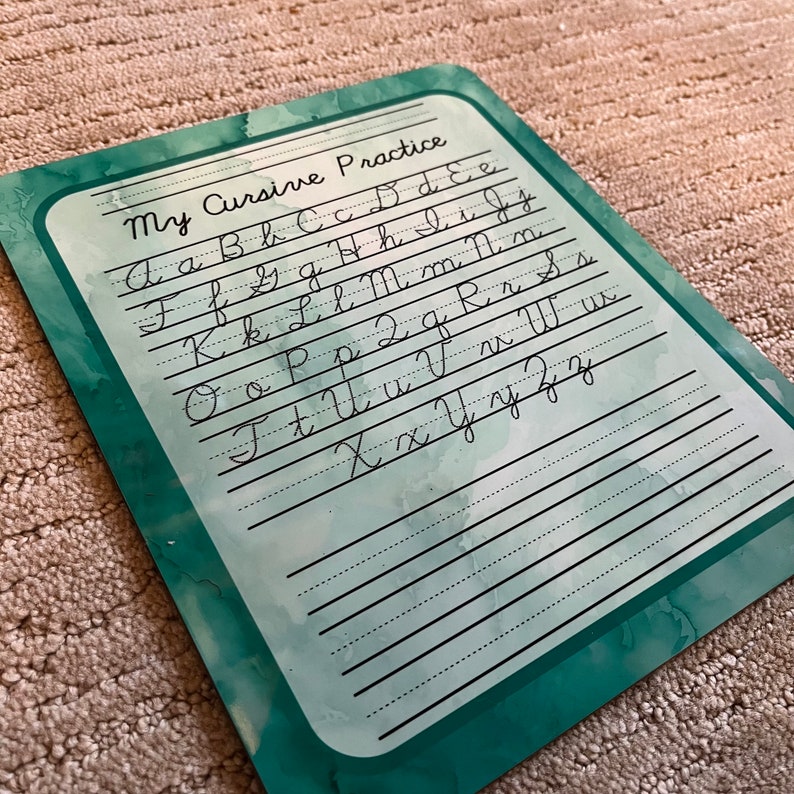 My Cursive Practice
A a B b C c D d E e
F f G g H h I i J j
K k L l M m N n
O o P p Q q R r S s
T t U u V v W w
X x Y y Z z